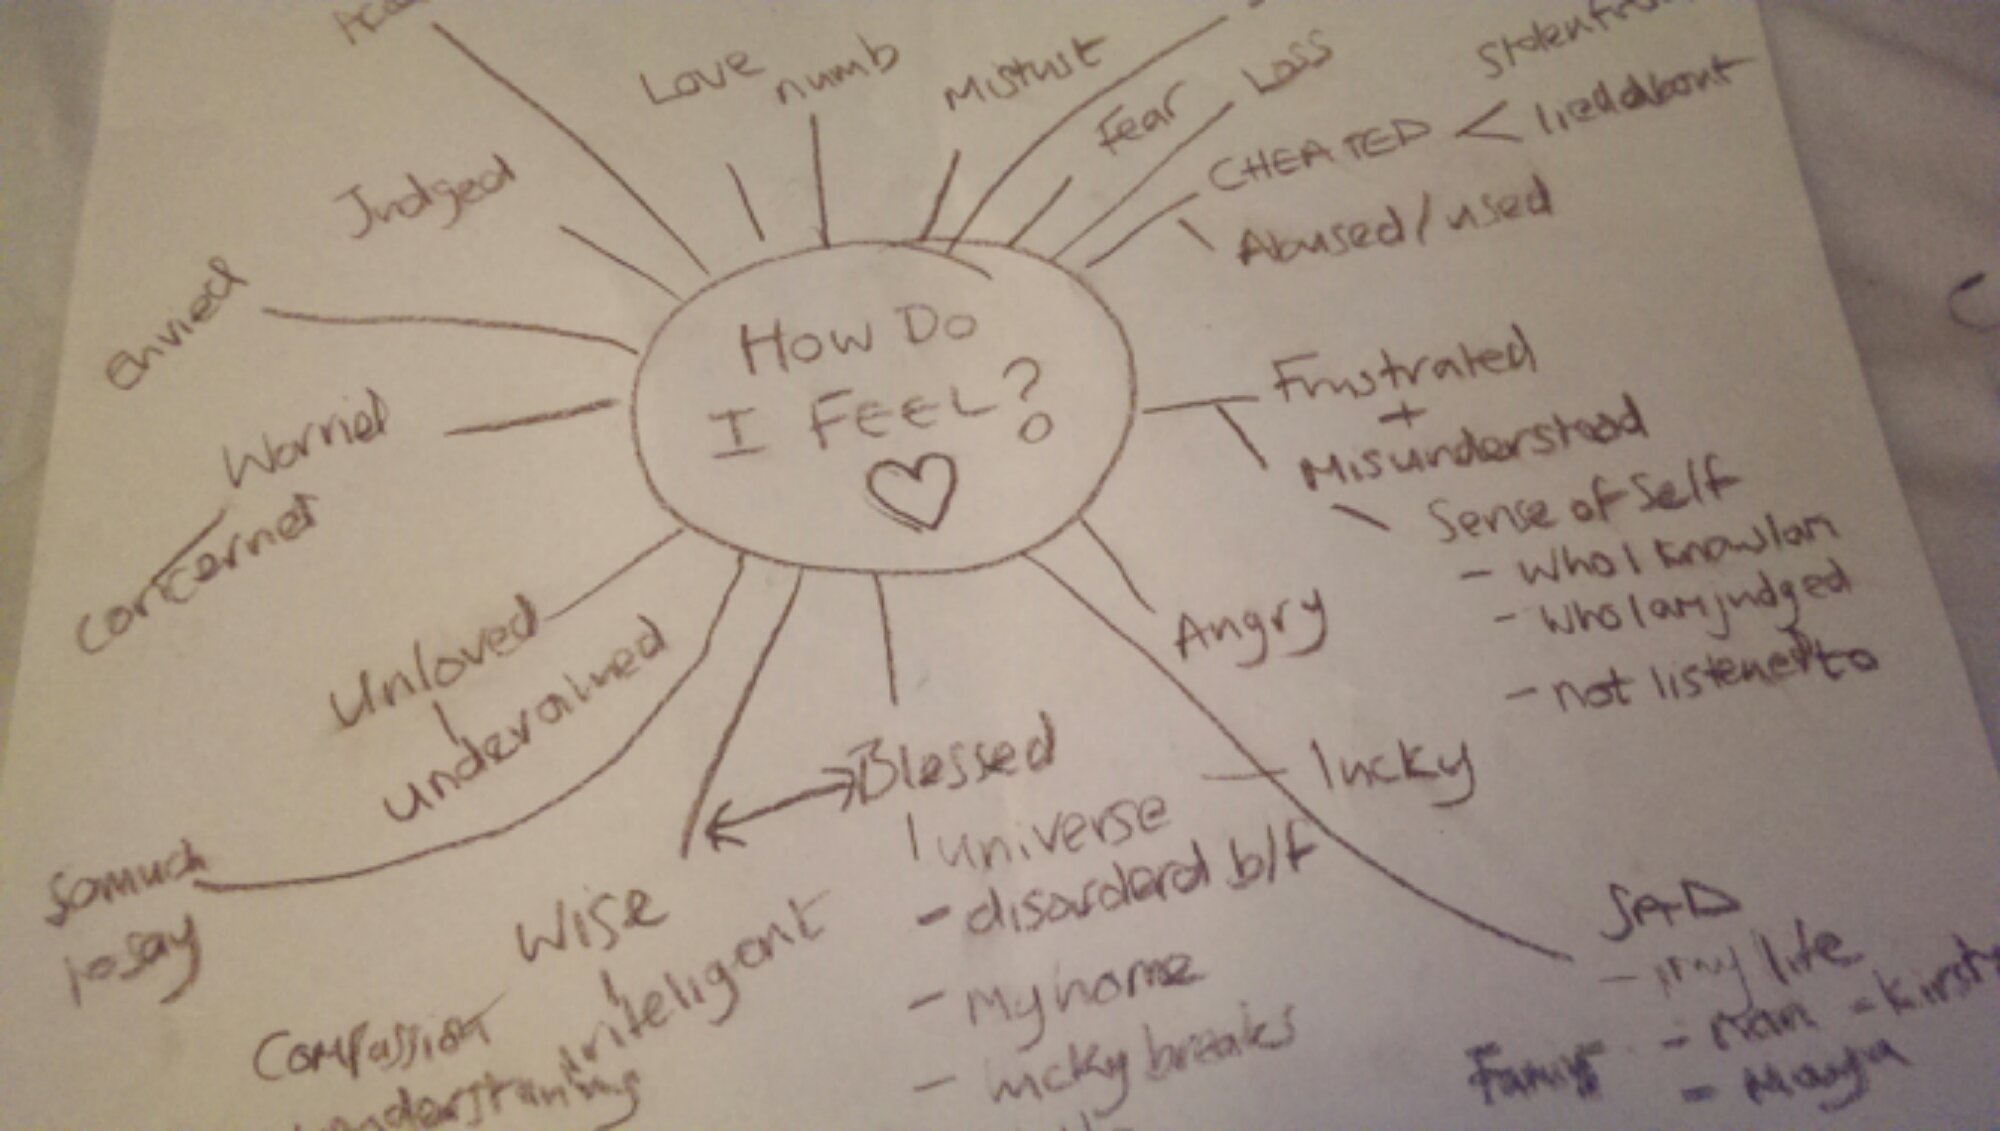 HOW DO
I FEEL?
Love
numb
Mistust
Fear
Loss
CHEATED <
lied about
Abused / used
Frustrated
+
Misunderstood
Sense of Self
- who I know I am
- who I am judged
- not listened to
Angry
lucky
SAD
- my life
- Nan - Kirsty
Family
Blessed
universe
- disorderd b/f
- My home
- lucky breaks
Wise
inteligant
Compassion
understanding
So much
to say
Unloved
undervalued
Worried
Concerned
envied
Judged